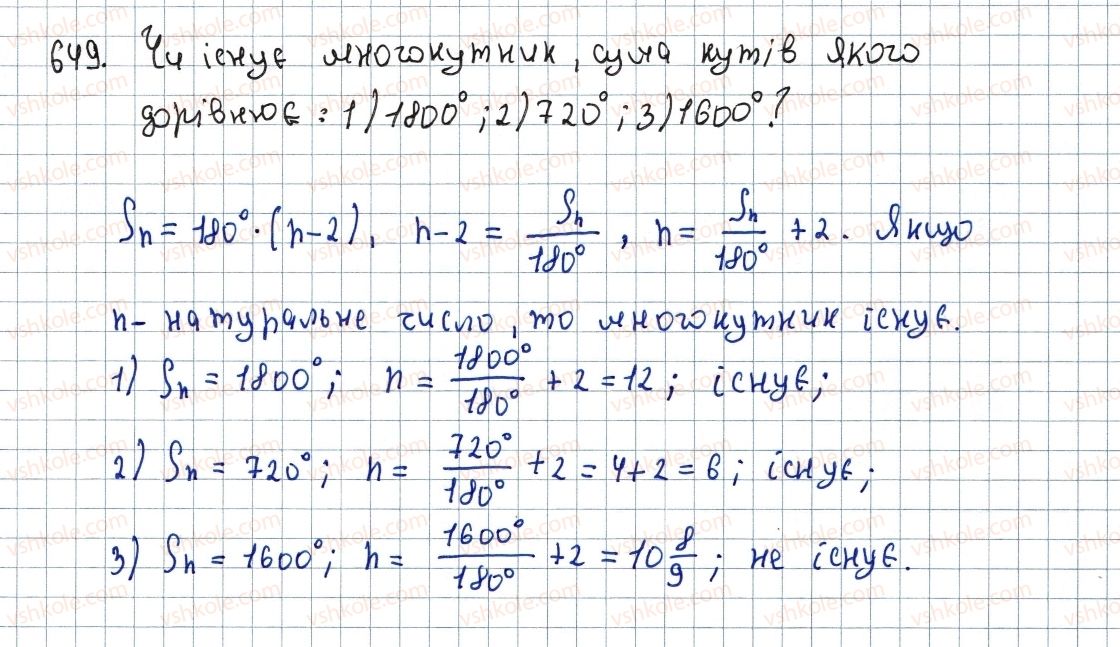 649. Чи існує многокутник, сума кутів якого
дорівнює: 1) 1800°; 2) 720°; 3) 1600°?
Sn = 180° · (n-2), n-2 = Sn/180°, n = Sn/180° + 2. Якщо
n- натуральне число, то многокутник існує.
1) Sn = 1800°; n = 1800°/180° + 2 = 12; існує;
2) Sn = 720°; n = 720°/180° + 2 = 4+2 = 6; існує;
3) Sn = 1600°; n = 1600°/180° + 2 = 10 8/9; не існує.